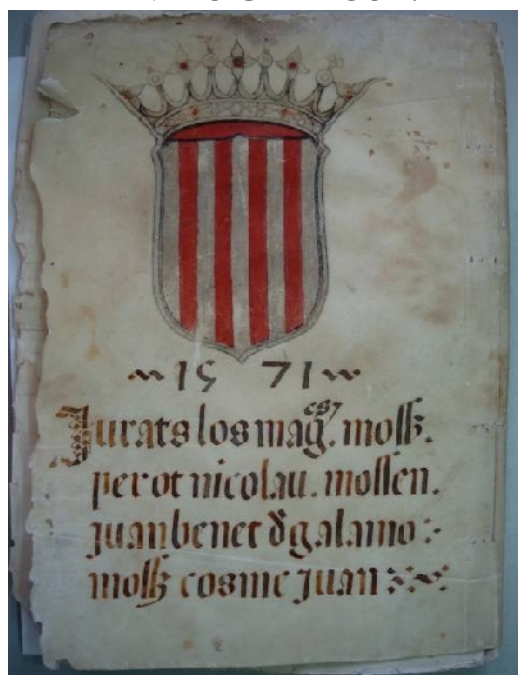 1571
Jurats los mag.es moss.
perot nicolau. mossen.
juan benet d galamo
moss cosme juan